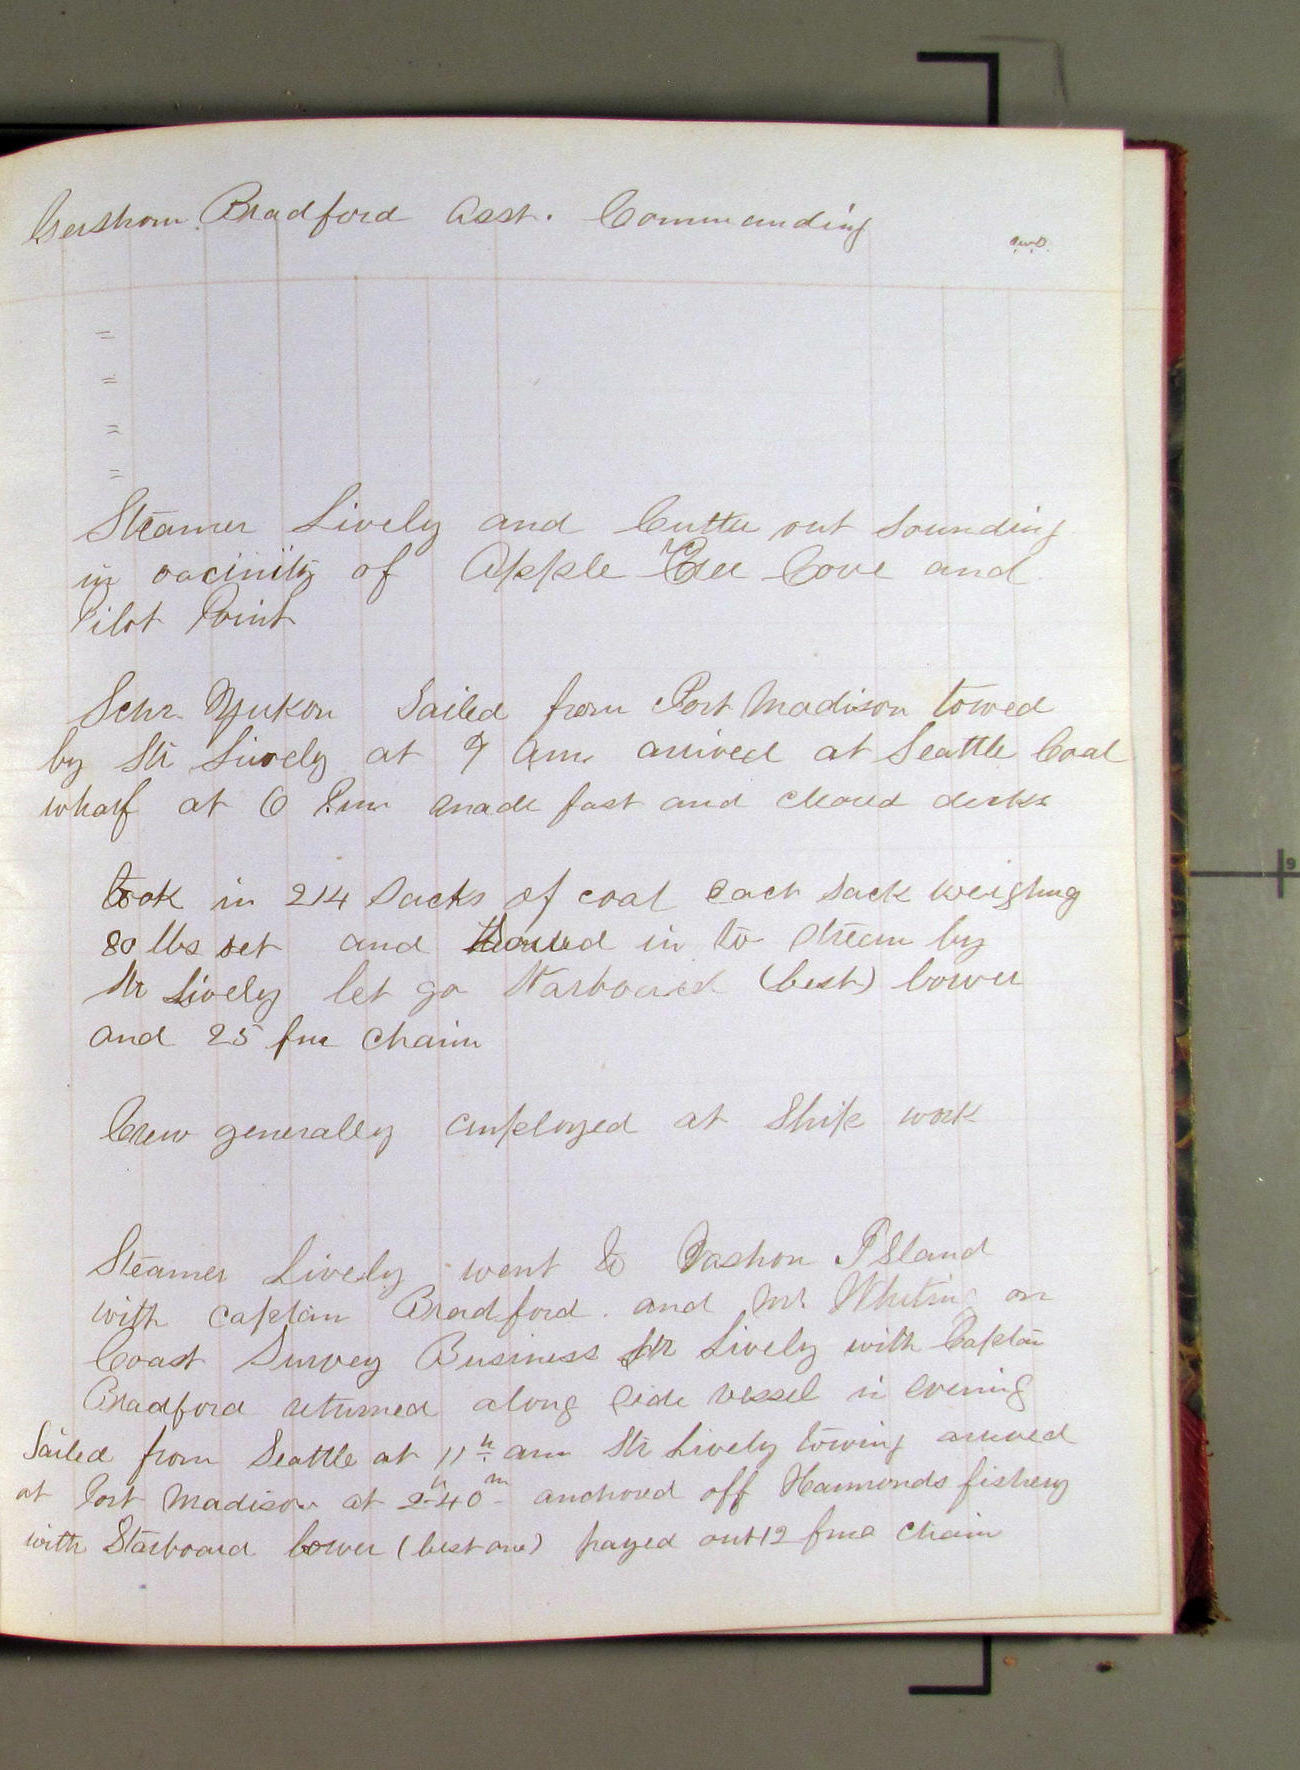 Gershom Bradford Asst. Commanding
=
=
=
=
Steamer Lively and Cutter out sounding
in vacinity of Apple Tree Cove and
Pilot Point
Schr Yukon Sailed from Port Madison towed
by Str Lively at 9 am arrived at Seattle Coal
wharf at 6 P.m made fast and cleard decks
took in 214 Sacks of coal each sack weighing
80 lbs and in to stream by
Str Lively let go Starboard (best) bower
and 25 fm chain
Crew generally employed at Ship work
Steamer Lively went to Vashon Island
with captain Bradford and Mr Whiting on
Coast Survey Business Str Lively with Captain
Bradford returned along side vessel in evening
Sailed from Seattle at 11h am Str Lively towing arrived
at Port Madison at 2h-40m anchored off Hammonds fishery
with Starboard bower (best one) payed out 12 fms chain